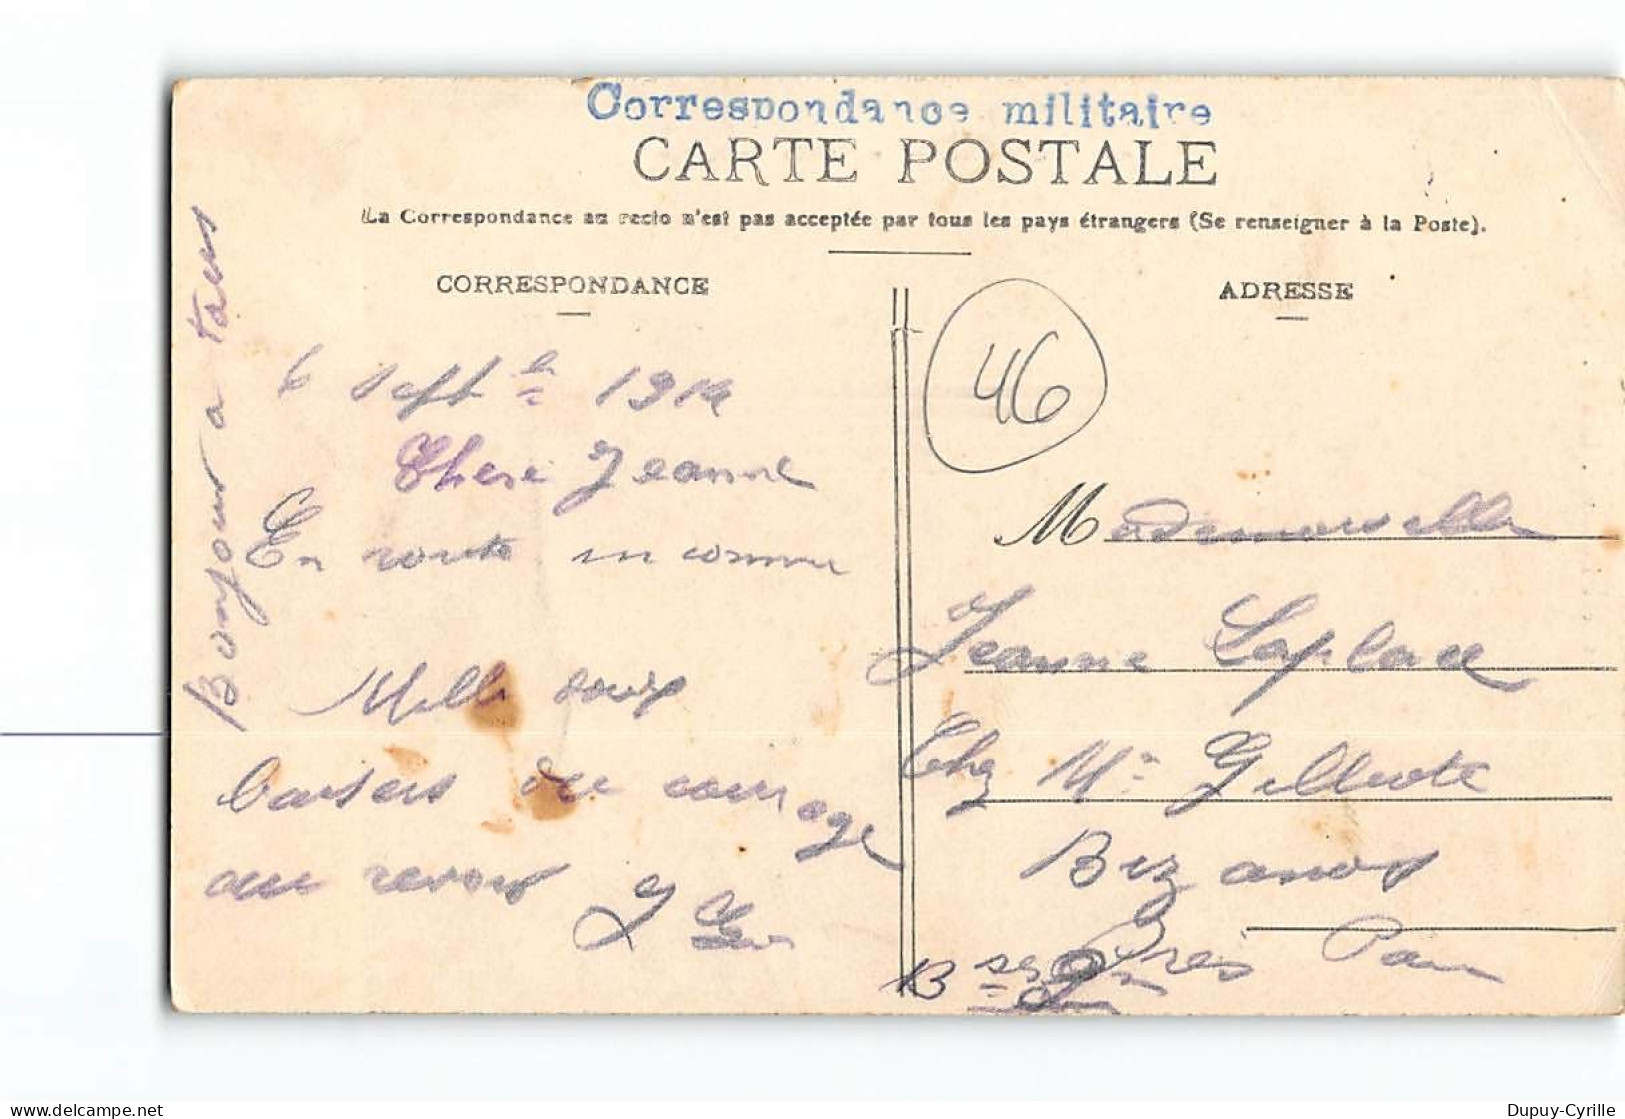 Correspondance militaire
CARTE POSTALE
La Correspondance au recto n'est pas acceptée par tous les pays étrangers (Se renseigner à la Poste).
CORRESPONDANCE
ADRESSE
46
Bonjour a tous
6 Sept bre 1914
Chere Jeanne
En route inconnu
Mille doux
baisers du courage
au revoir J
Mademoiselle
Jeanne Laplace
Chez Mr
Bizanos
Près Pau
Bses
Dupuy-Cyrille